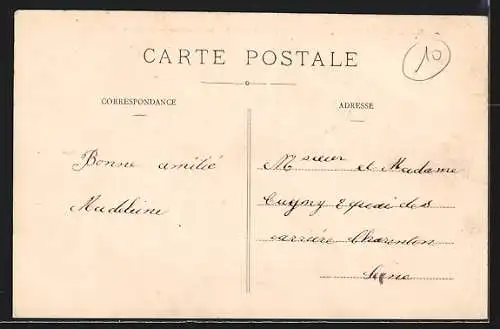 CARTE POSTALE
10
CORRESPONDANCE
ADRESSE
Bonne amitié
Madeleine
Msieur et Madame
Cugny 2 quai des
carrière Charenton
Seine